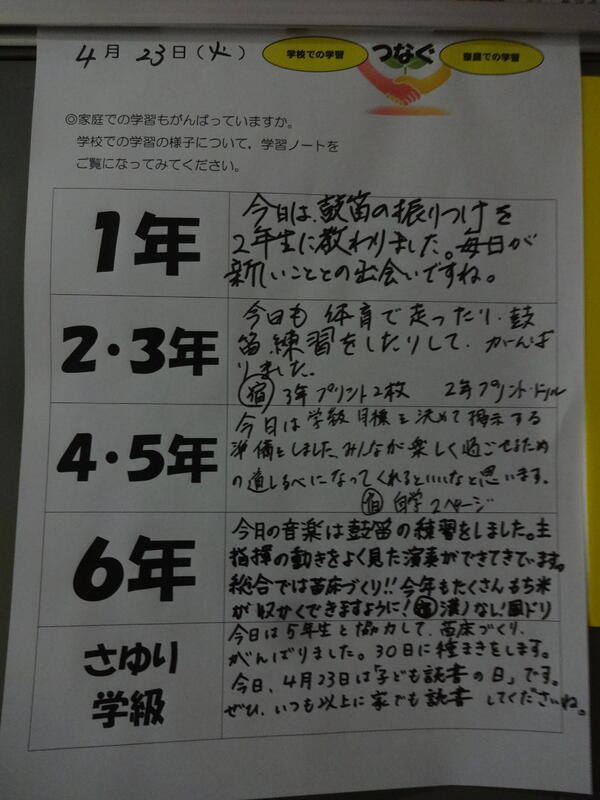 4月23日(火)
学校での学習
つなぐ
家庭での学習
◎家庭での学習もがんばっていますか。
学校での学習の様子について,学習ノートを
ご覧になってみてください。
1年
今日は、鼓笛の振りつけを
2年生に教わりました。毎日が
新しいこととの出会いですね。
2・3年
今日も 体育で走ったり、鼓
笛練習をしたりして、がんば
りました。
宿 3年プリント2枚 2年プリント・ドリル
4・5年
今日は学級目標を決めて掲示する
準備をしました。みんなが楽しく過ごせるため
の道しるべになってくれるといいなと思います。
宿 自学2ページ
6年
今日の音楽は鼓笛の練習をしました。主
指揮の動きをよく見た演奏ができてきています。
総合では苗床づくり!!今年もたくさんもち米
が収かくできますように!宿 漢ノなし!風ドリ
さゆり
学級
今日は5年生と協力して、苗床づくり、
がんばりました。30日に種まきをします。
今日、4月23日は「子ども読書の日」です。
ぜひ、いつも以上に家でも読書してくださいね。